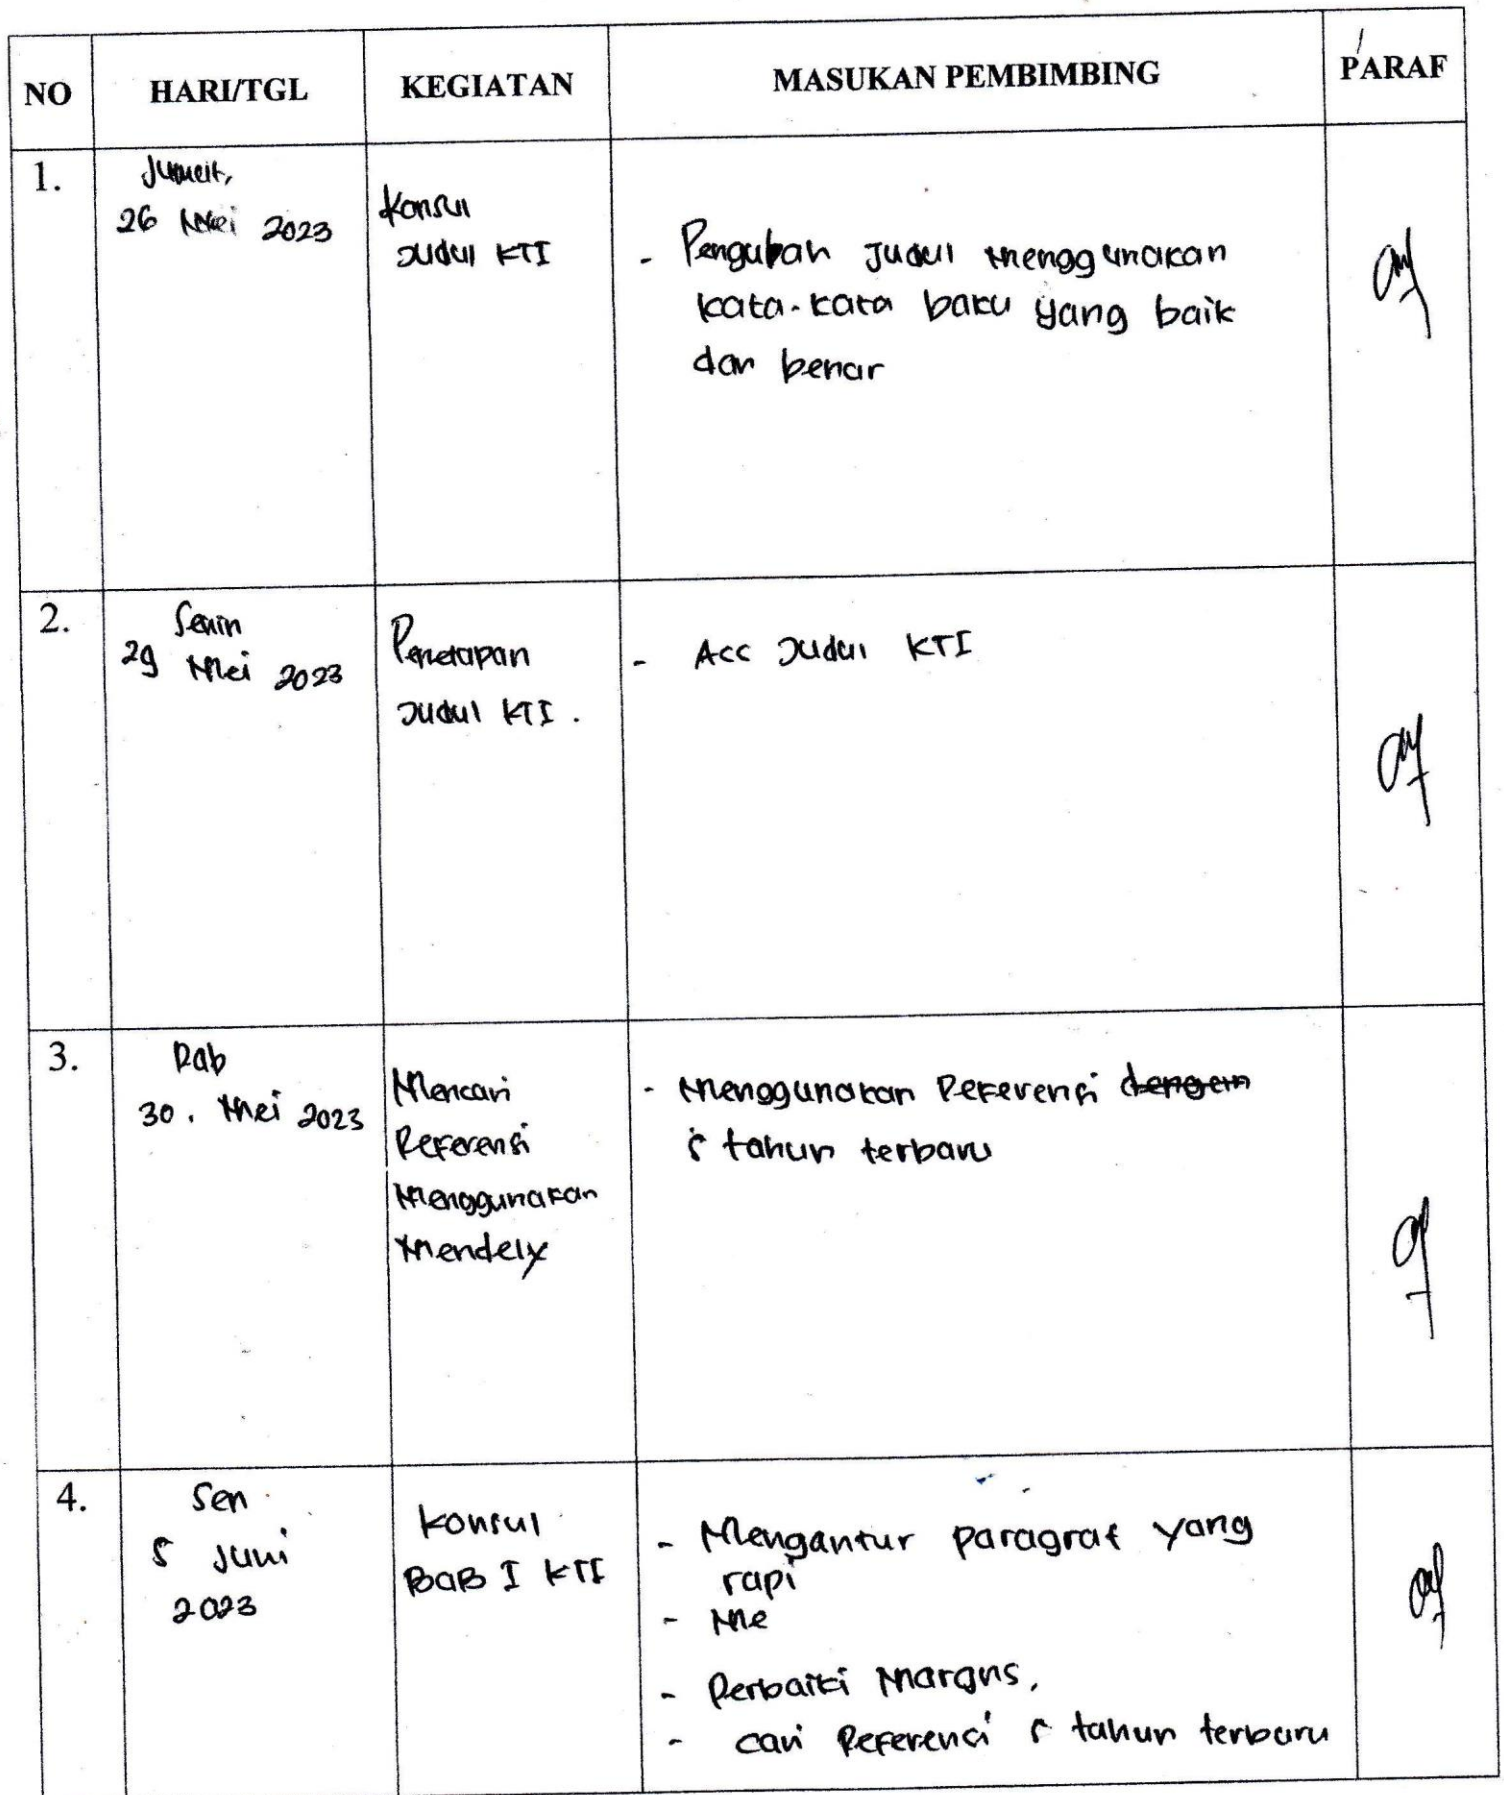 NO HARI/TGL KEGIATAN MASUKAN PEMBIMBING PARAF
1.
Jumat,
26 Mei 2023
Konsul
Judul KTI
- Pengubah Judul menggunakan
kata-kata baku yang baik
dan benar
2.
Senin
29 Mei 2023
Penetapan
Judul KTI.
- Acc Judul KTI
3.
Rab
30. Mei 2023
Mencari
Referensi
Menggunakan
Mendely
- Menggunakan Referensi dengan
5 tahun terbaru
4.
Sen
5 Juni
2023
Konsul
BAB I KTI
- Mengantur paragraf yang
rapi
- Me
- Perbaiki Margns,
- cari Referensi 5 tahun terbaru